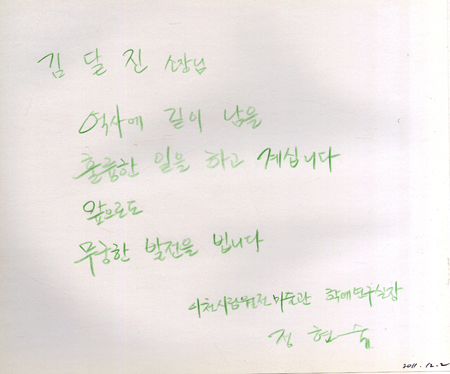 김 달 진 소장님
역사에 길이 남을
훌륭한 일을 하고 계십니다
앞으로도
무궁한 발전을 빕니다
이천시립월전미술관 학예연구실장
정 현 숙
2011. 12. 2